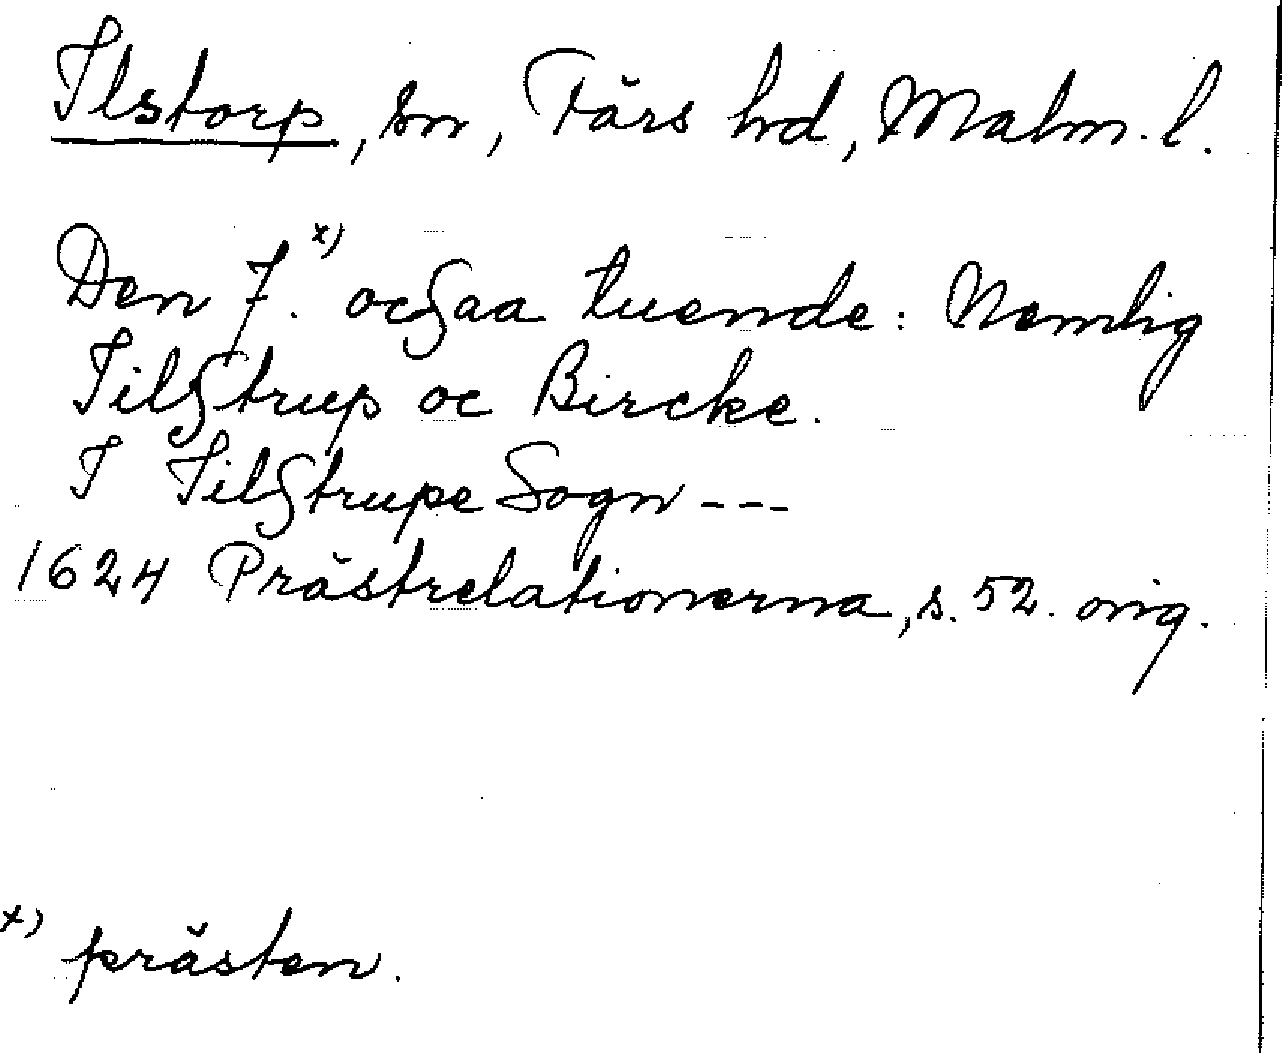 Ilstorp, sn, Färs hd, Malm. l.
Den 7. x) ocßaa tuende: Nemlig
Iilßtrup oc Bircke.
I Iilßtrupe Sogn ---
1624 Prästrelationerna, s. 52. orig.
x) prästen.